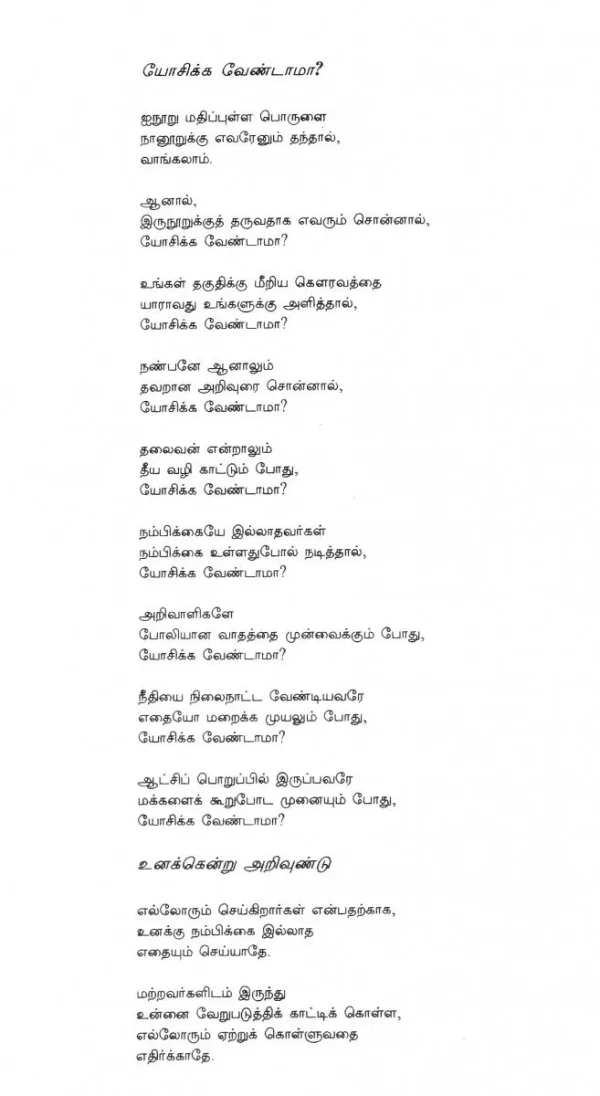 யோசிக்க வேண்டாமா?
ஐநூறு மதிப்புள்ள பொருளை
நானூறுக்கு எவரேனும் தந்தால்,
வாங்கலாம்.
ஆனால்,
இருநூறுக்குத் தருவதாக எவரும் சொன்னால்,
யோசிக்க வேண்டாமா?
உங்கள் தகுதிக்கு மீறிய கௌரவத்தை
யாராவது உங்களுக்கு அளித்தால்,
யோசிக்க வேண்டாமா?
நண்பனே ஆனாலும்
தவறான அறிவுரை சொன்னால்,
யோசிக்க வேண்டாமா?
தலைவன் என்றாலும்
தீய வழி காட்டும் போது,
யோசிக்க வேண்டாமா?
நம்பிக்கையே இல்லாதவர்கள்
நம்பிக்கை உள்ளதுபோல் நடித்தால்,
யோசிக்க வேண்டாமா?
அறிவாளிகளே
போலியான வாதத்தை முன்வைக்கும் போது,
யோசிக்க வேண்டாமா?
நீதியை நிலைநாட்ட வேண்டியவரே
எதையோ மறைக்க முயலும் போது,
யோசிக்க வேண்டாமா?
ஆட்சிப் பொறுப்பில் இருப்பவரே
மக்களைக் கூறுபோட முனையும் போது,
யோசிக்க வேண்டாமா?
உனக்கென்று அறிவுண்டு
எல்லோரும் செய்கிறார்கள் என்பதற்காக,
உனக்கு நம்பிக்கை இல்லாத
எதையும் செய்யாதே.
மற்றவர்களிடம் இருந்து
உன்னை வேறுபடுத்திக் காட்டிக் கொள்ள,
எல்லோரும் ஏற்றுக் கொள்ளுவதை
எதிர்க்காதே.